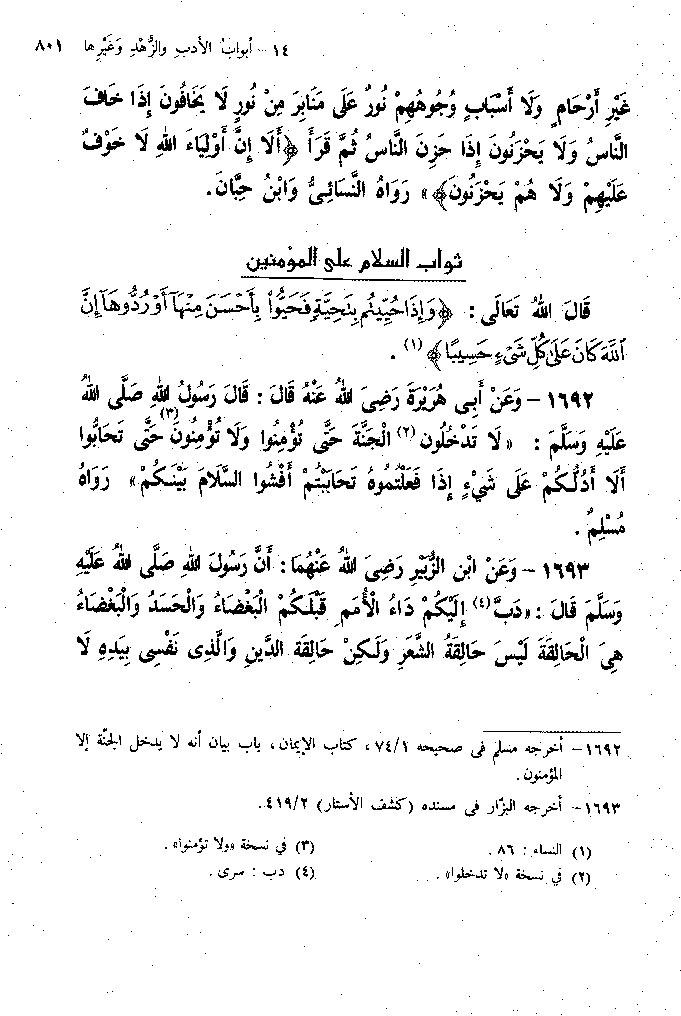 ١٤ - أبوابُ الأدبِ والزُّهْدِ وَغَيْرِها ٨٠١
غَيْرِ أَرْحَامٍ وَلَا أَسْبَابٍ وُجُوهُهِمْ نُورٌ عَلَى مَنَابِرَ مِنْ نُورٍ لَا يَخَافُونَ إِذَا خَافَ
النَّاسُ وَلَا يَحْزَنُونَ إِذَا حَزِنَ النَّاسُ ثُمَّ قَرَأَ ﴿أَلَا إِنَّ أَوْلِيَاءَ اللهِ لَا خَوْفٌ
عَلَيْهِمْ وَلَا هُمْ يَحْزَنُونَ﴾» رَوَاهُ النَّسَائِىُّ وَابْنُ حِبَّانَ.
ثواب السلام على المؤمنين
قَالَ اللهُ تَعَالَى : ﴿وَإِذَا حُيِّيتُم بِتَحِيَّةٍ فَحَيُّوا۟ بِأَحْسَنَ مِنْهَآ أَوْ رُدُّوهَآ إِنَّ
ٱللَّهَ كَانَ عَلَىٰ كُلِّ شَىْءٍ حَسِيبًا﴾ (١) .
١٦٩٢ - وَعَنْ أَبِى هُرَيْرَةَ رَضِىَ اللهُ عَنْهُ قَالَ : قَالَ رَسُولُ اللهِ صَلَّى اللهُ
عَلَيْهِ وَسَلَّمَ : «لَا تَدْخُلُون (٢) الْجَنَّةَ حَتَّى تُؤْمِنُوا وَلَا تُؤْمِنُونَ (٣) حَتَّى تَحَابُّوا
أَلَا أَدُلُّكُمْ عَلَى شَيْءٍ إِذَا فَعَلْتُمُوهُ تَحَابَبْتُمْ أَفْشُوا السَّلَامَ بَيْنَكُمْ» رَوَاهُ
مُسْلِمٌ .
١٦٩٣ - وَعَنْ ابْنِ الزُّبَيْرِ رَضِىَ اللهُ عَنْهُمَا : أَنَّ رَسُولَ اللهِ صَلَّى اللهُ عَلَيْهِ
وَسَلَّمَ قَالَ : «دَبَّ (٤) إِلَيْكُمْ دَاءُ الْأُمَمِ قَبْلَكُمْ الْبَغْضَاءُ وَالْحَسَدُ وَالْبَغْضَاءُ
هِىَ الْحَالِقَةَ لَيْسَ حَالِقَةُ الشَّعَرِ وَلَكِنْ حَالِقَة الدِّينِ وَالَّذِى نَفْسِى بِيَدِهِ لَا
١٦٩٢ - أخرجه مسلم فى صحيحه ٧٤/١ ، كتاب الإيمان ، باب بيان أنه لا يدخل الجنة إلا
المؤمنون .
١٦٩٣ - أخرجه البزّار فى مسنده (كشف الأستار) ٤١٩/٢ .
(١) النساء : ٨٦ . (٣) في نسخة «ولا تؤمنوا» .
(٢) في نسخة «لا تدخلوا» . (٤) دب : سرى .